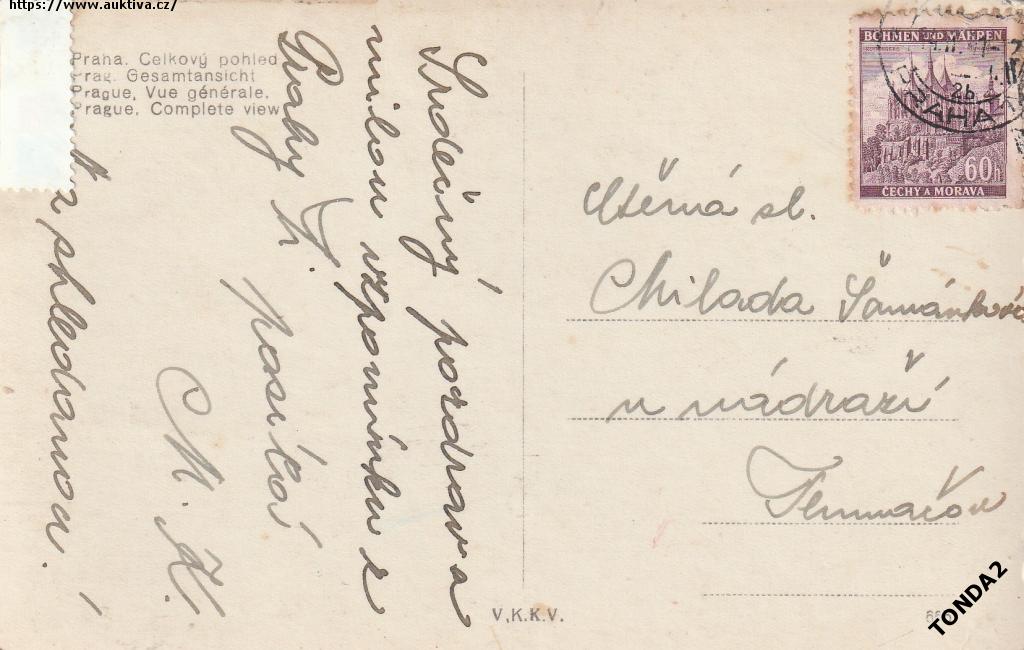 https://www.auktiva.cz/
Praha. Celkový pohled
Prag. Gesamtansicht
Prague, Vue générale.
Prague. Complete view
Srdečný pozdrav a
milou vzpomínku z
Prahy
posílá
M. K.
shledanou.
BÖHMEN UND MÄHREN
PRAHA
2b
60h
ČECHY A MORAVA
Ctěná sl.
Milada Šamánková
u nádraží
Tlumačov
V.K.K.V.
TONDA2